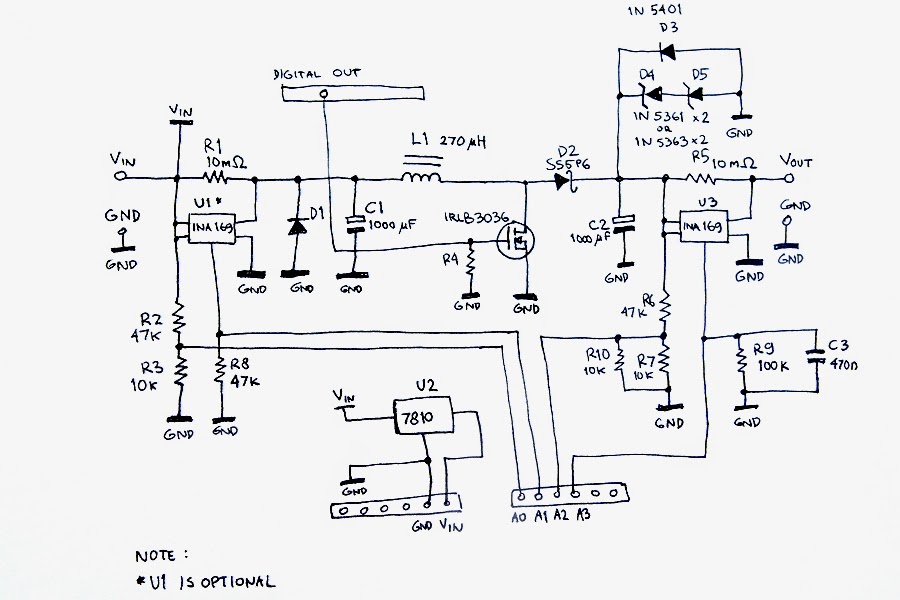 1N 5401
D3
DIGITAL OUT
D4 D5
1N 5361 x2
OR
1N 5363 x2
GND
VIN
VIN
R1
10mΩ
L1 270µH
D2
SS5P6
R5 10mΩ
VOUT
U1*
INA169
GND
GND
D1
C1
1000µF
IRLB3036
R4
C2
1000µF
U3
INA169
GND
GND
GND
GND
GND
GND
GND
GND
GND
R2
47K
R3
10K
R8
47K
GND
GND
R6
47K
R10
10K
R7
10K
R9
100K
C3
470n
GND
GND
U2
VIN
7810
GND
GND VIN
A0 A1 A2 A3
NOTE :
*U1 IS OPTIONAL